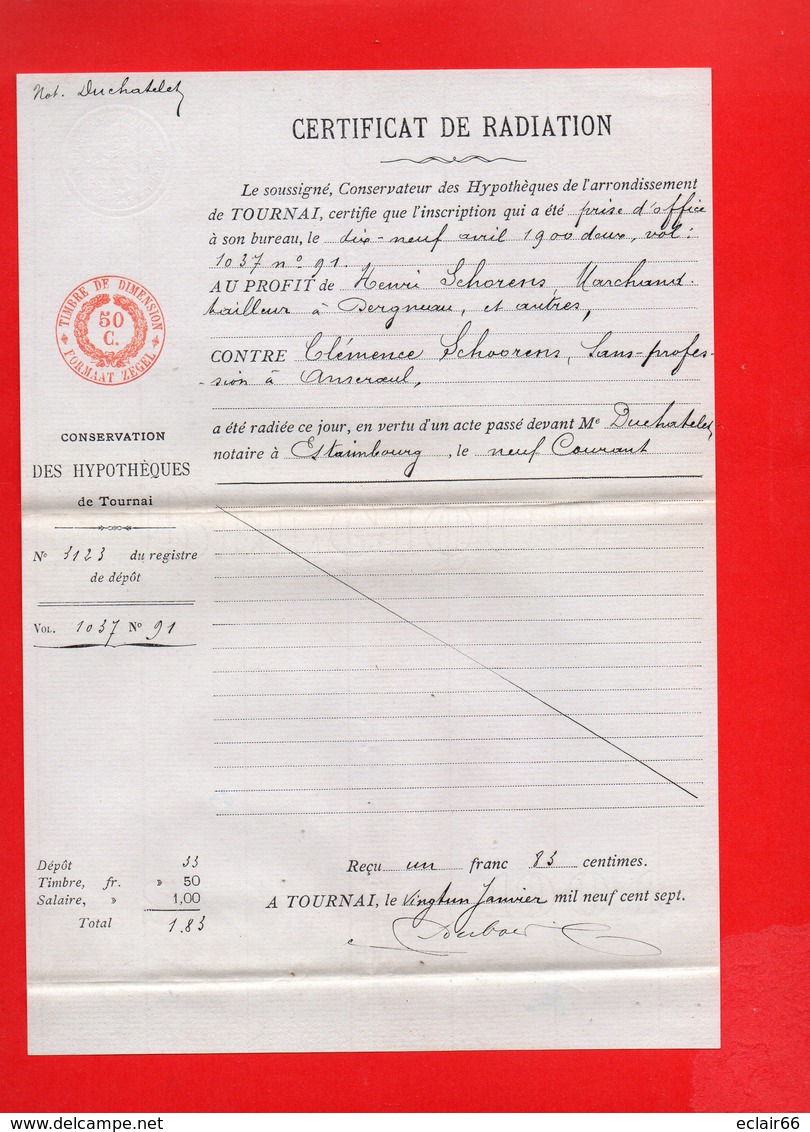 Not. Duchatelet
CERTIFICAT DE RADIATION
Le soussigné, Conservateur des Hypothèques de l'arrondissement
de TOURNAI, certifie que l'inscription qui a été prise d'office
à son bureau, le dix-neuf avril 1900 deux, vol:
1037 n° 91.
AU PROFIT de Henri Schorens, Marchand-
tailleur à Dergneau, et autres,
CONTRE Clémence Schoorens, Sans-profes-
-sion à Anseroeul,
a été radiée ce jour, en vertu d'un acte passé devant Me Duchatelet
notaire à Estaimbourg, le neuf Courant
TIMBRE DE DIMENSION
50
C.
FORMAAT ZEGEL
CONSERVATION
DES HYPOTHÈQUES
de Tournai
N° 3123 du registre
de dépôt
VOL. 1037 N° 91
Dépôt 33
Timbre, fr. » 50
Salaire, » 1,00
Total 1.83
Reçu un franc 83 centimes.
A TOURNAI, le Vingtun Janvier mil neuf cent sept.
eclair66